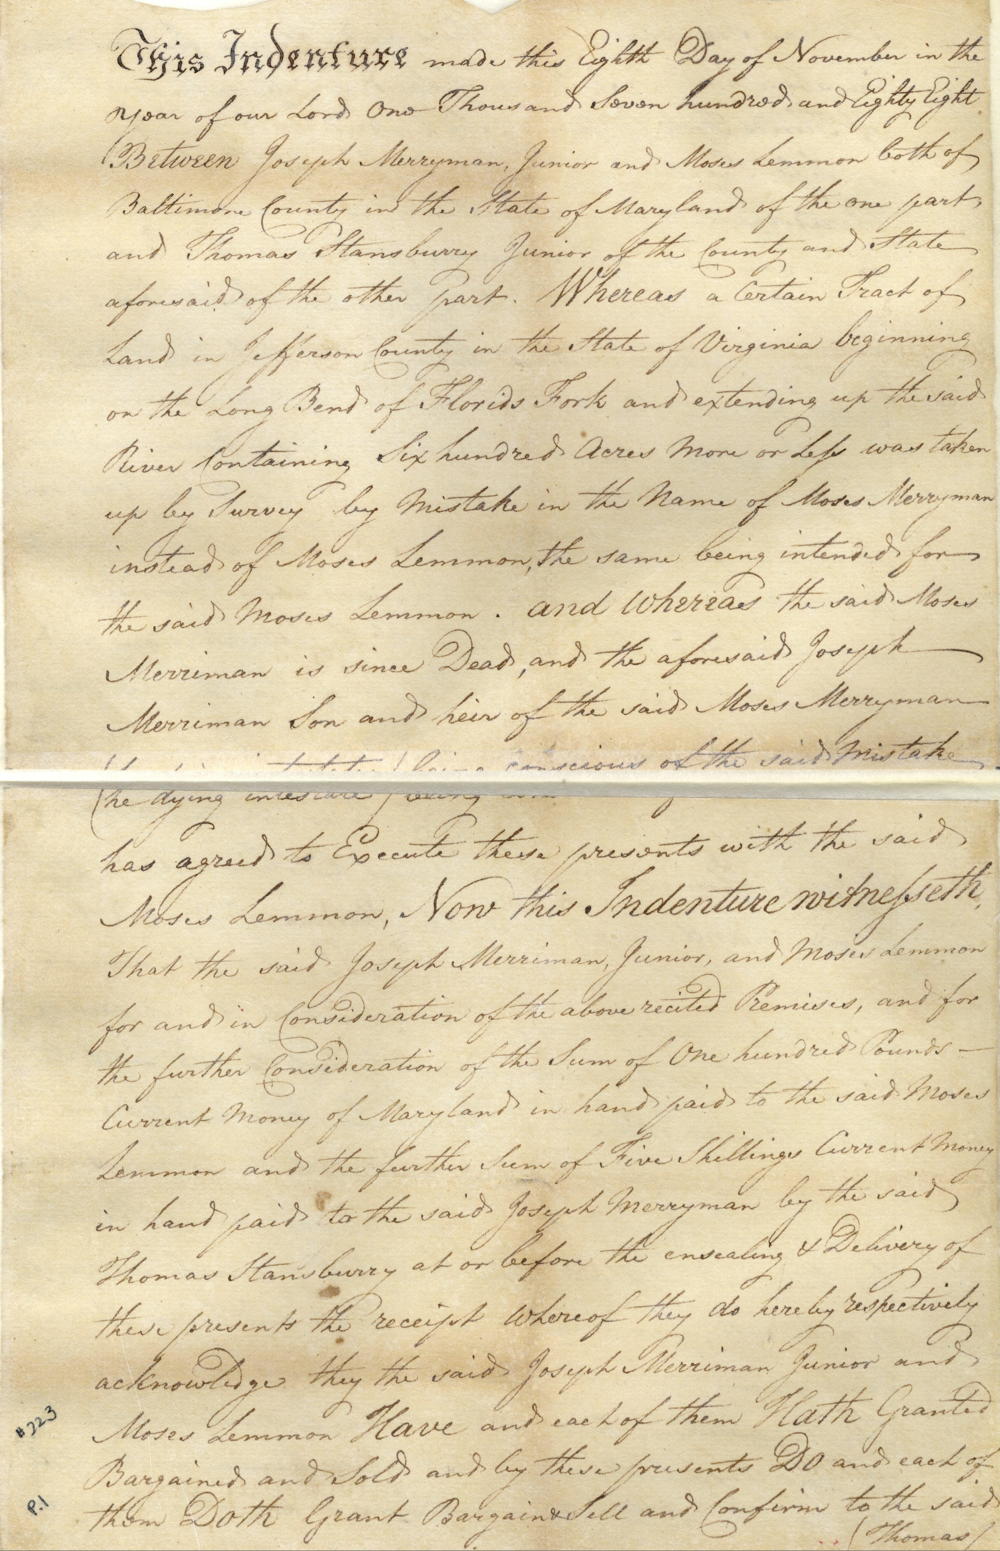 This Indenture made this Eighth Day of November in the
year of our Lord One Thousand Seven hundred and Eighty Eight
Between Joseph Merryman, Junior and Moses Lemmon both of
Baltimore County in the State of Maryland of the one part
and Thomas Stansburry Junior of the County and State
aforesaid of the other part. Whereas a Certain Tract of
Land in Jefferson County in the State of Virginia beginning
on the Long Bend of Florids Fork and extending up the said
River Containing Six hundred Acres More or Less was taken
up by Survey by Mistake in the Name of Moses Merryman
instead of Moses Lemmon, the same being intended for
the said Moses Lemmon. and Whereas the said Moses
Merriman is since Dead, and the aforesaid Joseph
Merriman Son and heir of the said Moses Merryman
(he dying intestate) being conscious of the said Mistake
has agreed to Execute these presents with the said
Moses Lemmon, Now this Indenture witnesseth,
That the said Joseph Merriman, Junior, and Moses Lemmon
for and in Consideration of the above recited Premises, and for
the further Consideration of the Sum of One hundred Pounds
Current Money of Maryland in hand paid to the said Moses
Lemmon and the further Sum of Five Shillings Current Money
in hand paid to the said Joseph Merryman by the said
Thomas Stansburry at or before the ensealing & Delivery of
these presents the receipt Whereof they do hereby respectively
acknowledge they the said Joseph Merriman Junior and
Moses Lemmon Have and each of them Hath Granted
Bargained and Sold and by these presents DO and each of
them Doth Grant Bargain & Sell and Confirm to the said
(Thomas)
#223
P.1